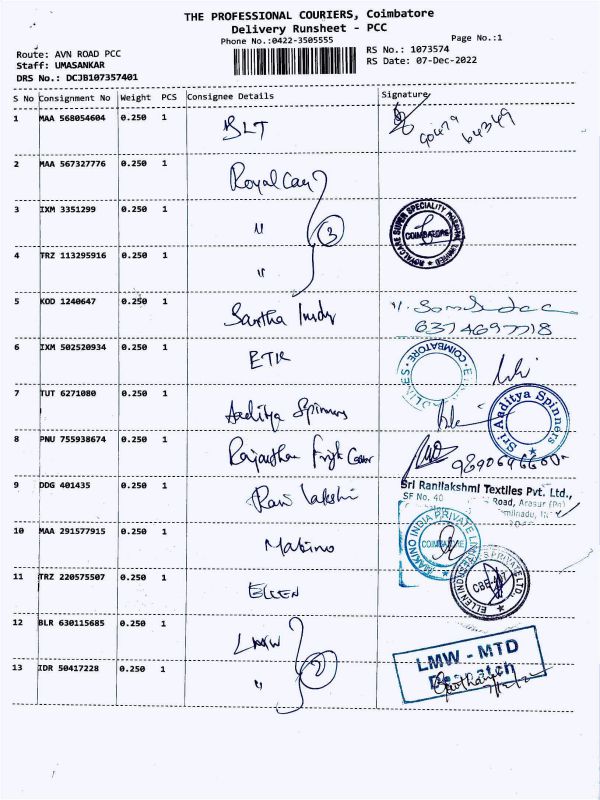 THE PROFESSIONAL COURIERS, Coimbatore
Delivery Runsheet - PCC
Phone No.:0422-3505555
Page No.:1
Route: AVN ROAD PCC
RS No.: 1073574
Staff: UMASANKAR
RS Date: 07-Dec-2022
DRS No.: DCJB107357401
S No Consignment No Weight PCS Consignee Details Signature
1 MAA 568054604 0.250 1 BLT
2 MAA 567327776 0.250 1 Royal Care
3 IXM 3351299 0.250 1 " 3
ROYALCARE SUPER SPECIALITY COIMBATORE LIMITED
4 TRZ 113295916 0.250 1 "
5 KOD 1240647 0.250 1
6374697718
6 IXM 502520934 0.250 1 ETK
COIMBATORE
7 TUT 6271080 0.250 1 Aaditya Spinners
Sri Aaditya Spinners
8 PNU 755938674 0.250 1 Rajasthan
9 DDG 401435 0.250 1 Rani Lakshmi
Sri Ranilakshmi Textiles Pvt. Ltd.,
SF No. 40 Road, Arasur
10 MAA 291577915 0.250 1 Makino
MAKINO INDIA PRIVATE LIMITED COIMBATORE
11 TRZ 220575507 0.250 1 ELLEN
ELLEN INDUSTRIES PRIVATE LTD. CBE
12 BLR 630115685 0.250 1 LMW
LMW - MTD
13 IDR 50417228 0.250 1 " 2
Despatch